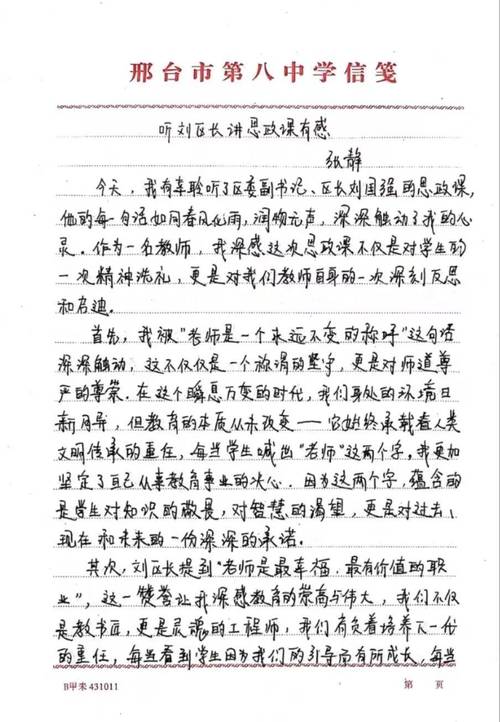 邢台市第八中学信笺
听刘区长讲思政课有感
张静
今天，我有幸聆听了区委副书记、区长刘国强的思政课，
他的每一句话如同春风化雨，润物无声，深深触动了我的心
灵。作为一名教师，我深感这次思政课不仅是对学生的
一次精神洗礼，更是对我们教师自身的一次深刻反思
和启迪.
首先，我被"老师是一个永远不变的称呼"这句话
深深触动，这不仅仅是一个称谓的坚守，更是对师道尊
严的尊崇。在这个瞬息万变的时代，我们身处的环境日
新月异，但教育的本质从未改变——它始终承载着人类
文明传承的重任，每当学生喊出"老师"这两个字，我更加
坚定了自己从事教育事业的决心. 因为这两个字，蕴含的
是学生对知识的敬畏，对智慧的渴望，更是对过去、
现在和未来的一份深深的承诺.
其次，刘区长提到"老师是最幸福、最有价值的职
业"，这一赞誉让我深感教育的崇高与伟大，我们不仅
是教书匠，更是灵魂的工程师，我们肩负着培养下一代
的重任，每当看到学生因为我们的引导而有所成长，每当
B甲未431011
第 页